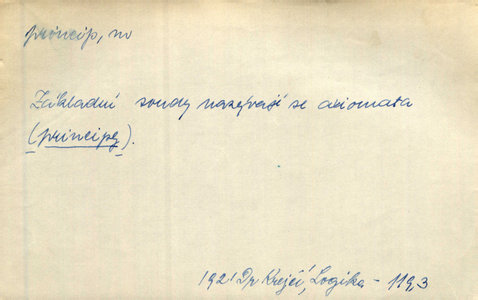 princip, m
Základní soudy nazývají se axiomata
(principy).
1921 Dr Krejčí, Logika - 119,3